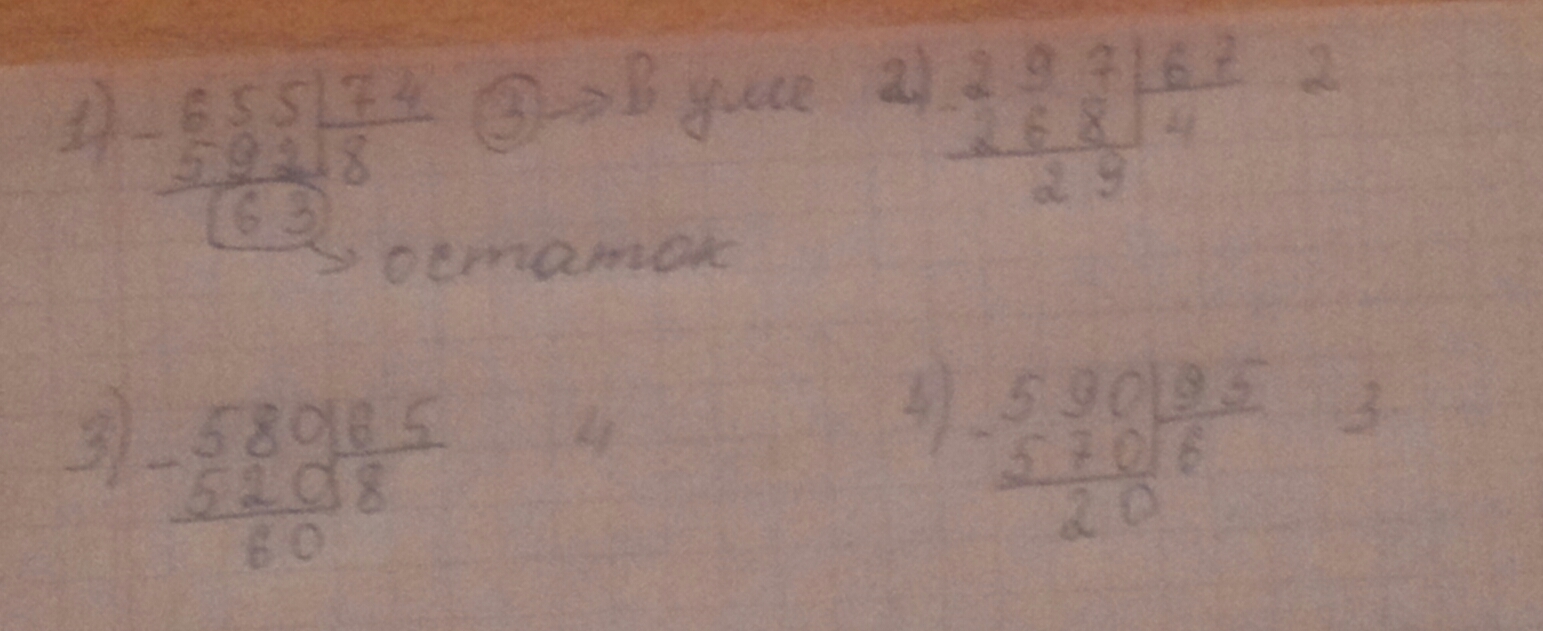 1) - 655 | 74 ③ → в уме 2) - 297 | 67 2
592 | 8 268 | 4
63 29
→ остаток
3) - 580 | 65 4 4) - 590 | 95 3
520 | 8 570 | 6
60 20